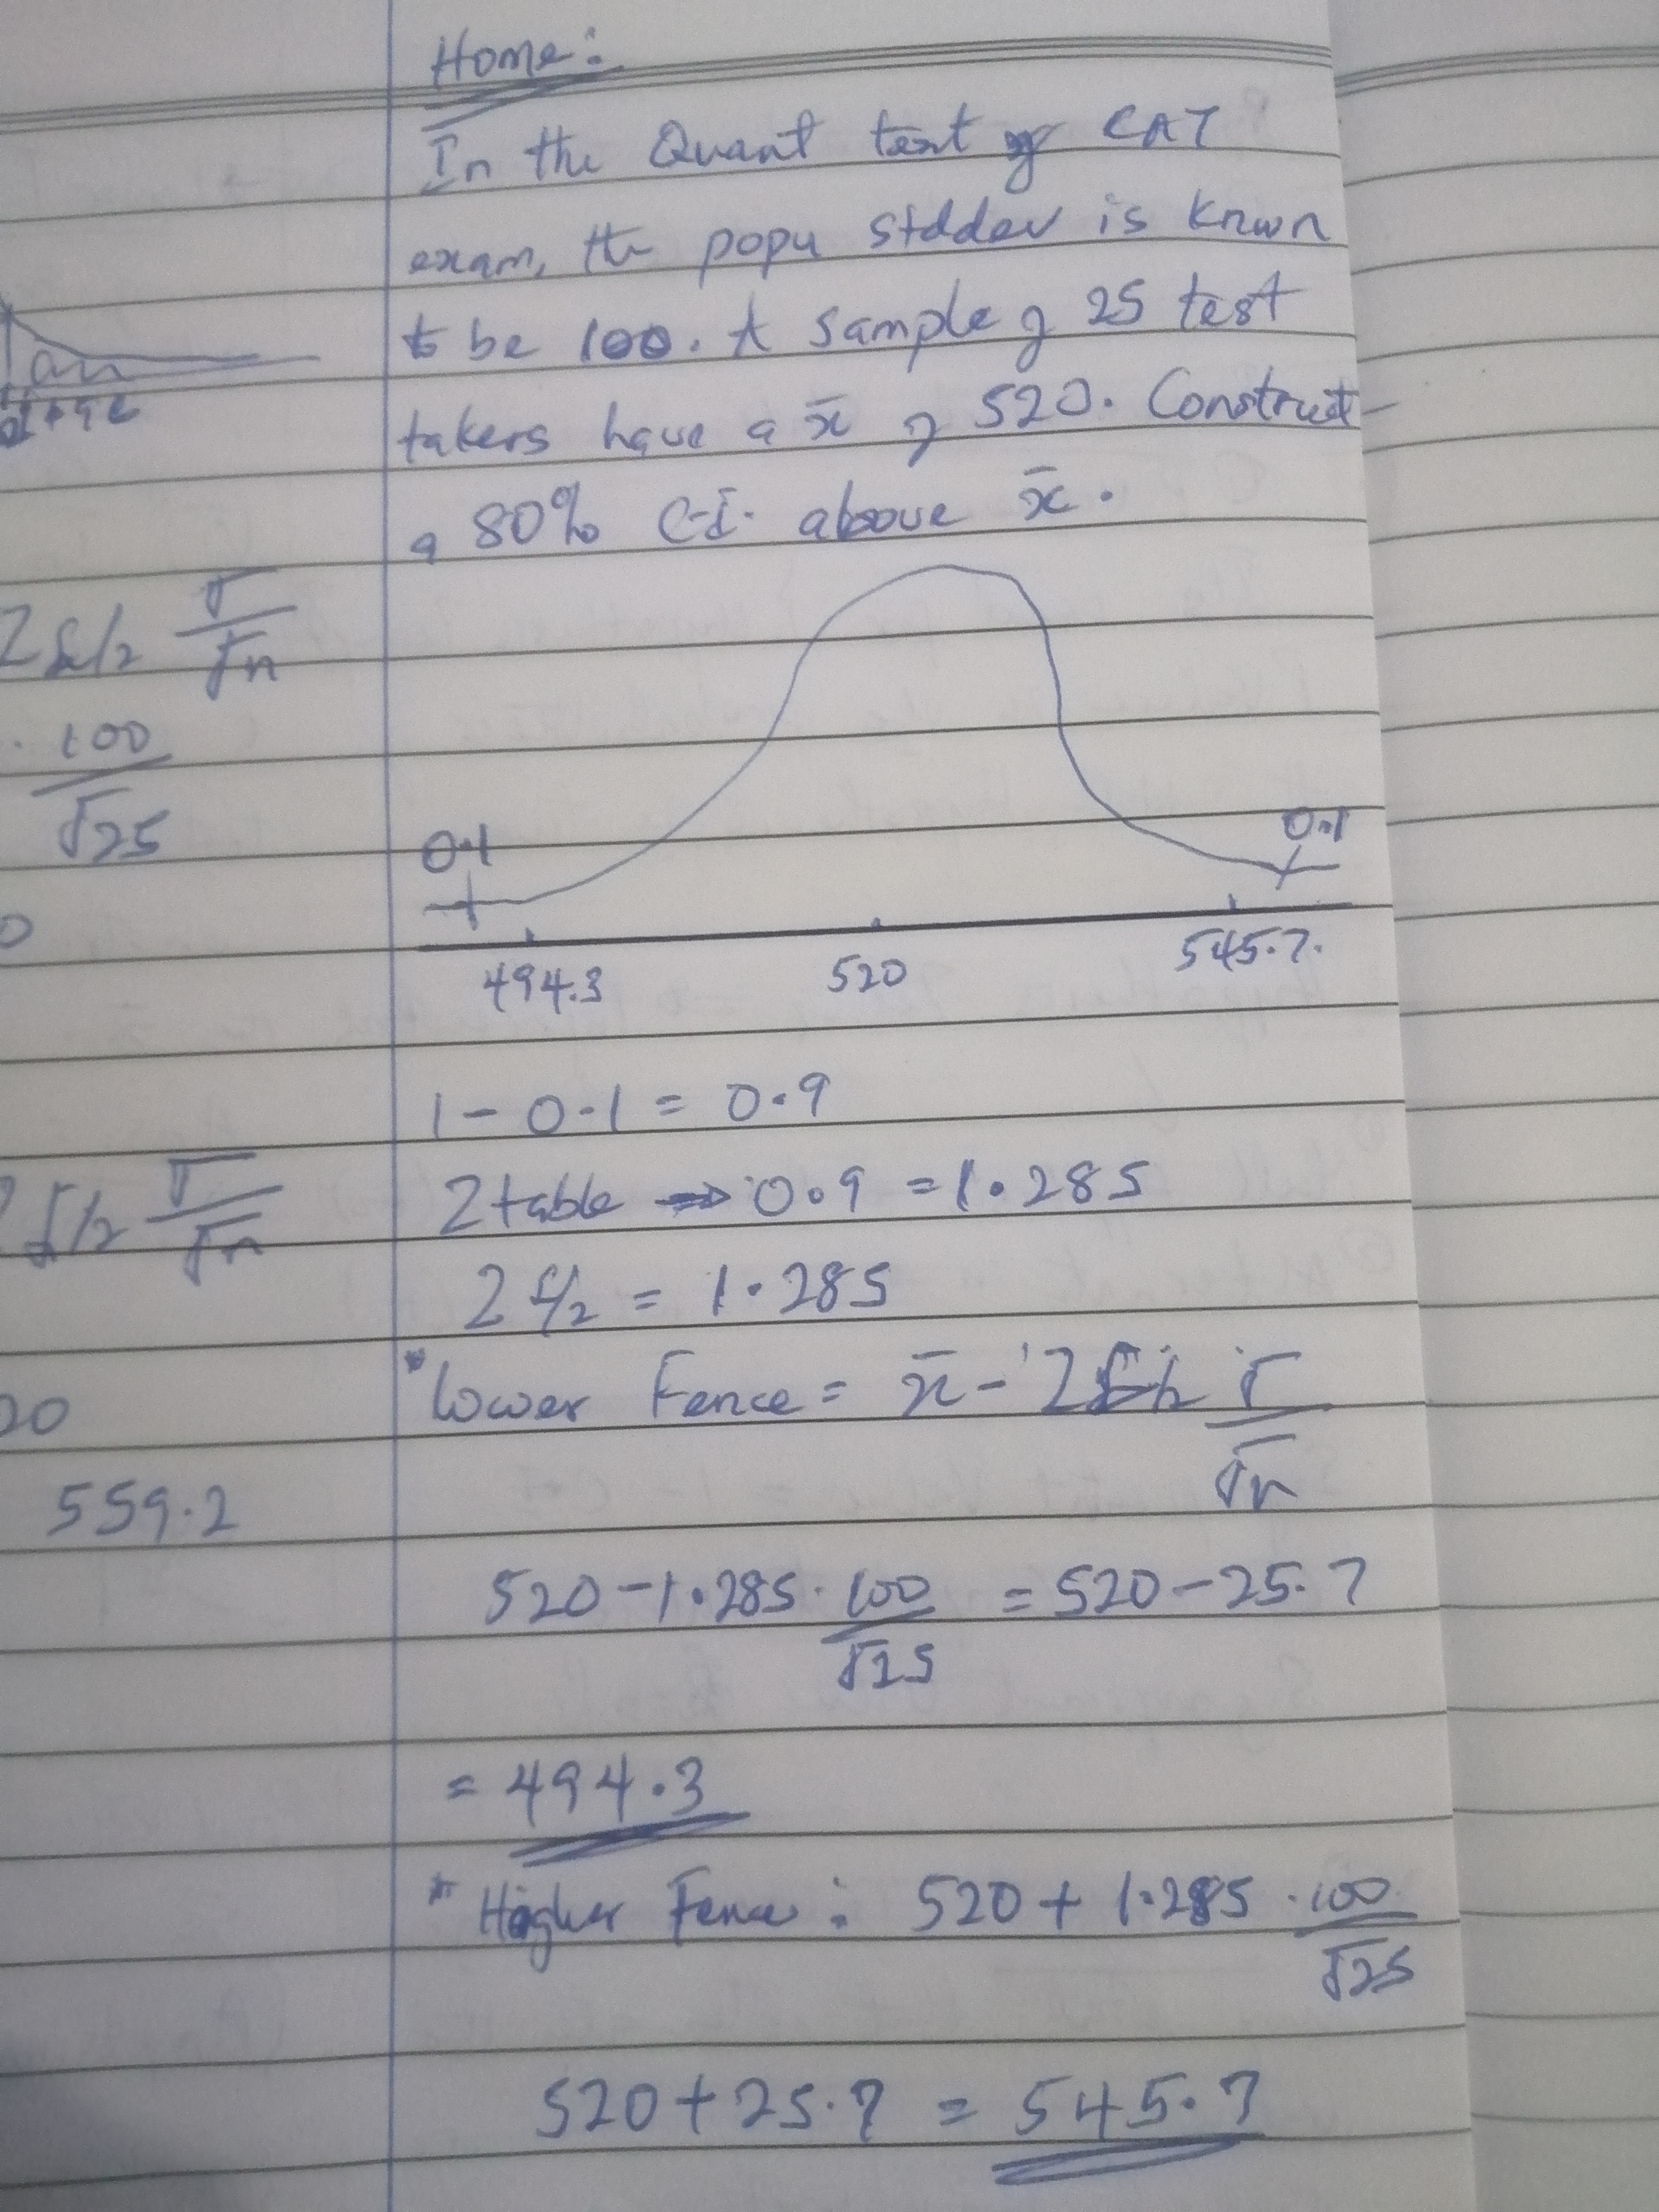 Home:
In the Quant test of CAT
exam, the popu stddev is known
to be 100. A sample of 25 test
takers have a x̄ of 520. Construct
a 80% C.I. above x̄.
0.1 0.1
494.3 520 545.7.
1 - 0.1 = 0.9
Z table => 0.9 = 1.285
Z α/2 = 1.285
* Lower Fence = x̄ - Z α/2 σ/√n
520 - 1.285 · 100/√25 = 520 - 25.7
= 494.3
* Higher Fence : 520 + 1.285 · 100/√25
520 + 25.7 = 545.7
Z α/2 σ/√n
· 100/√25
0
α/2 σ/√n
20
559.2